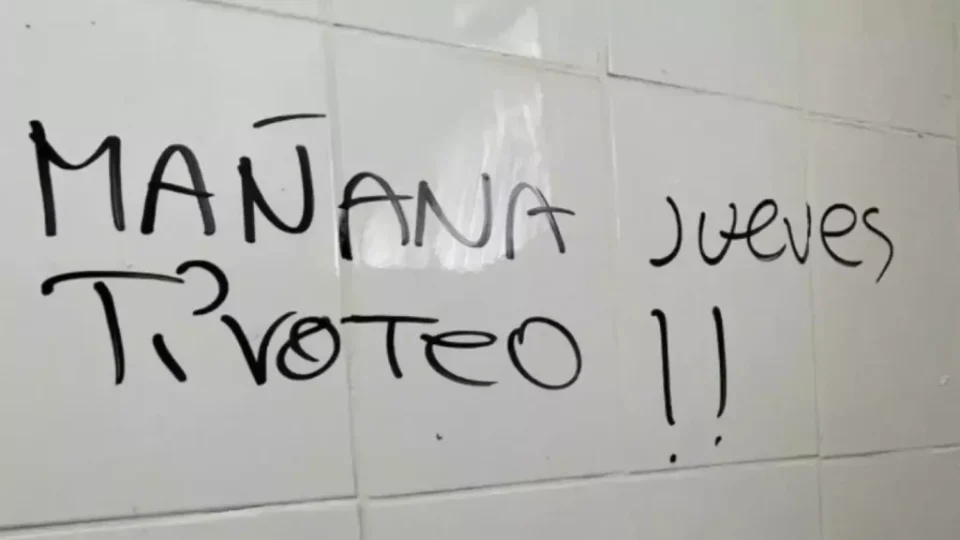 MAÑANA jueves
TiROTEO !!